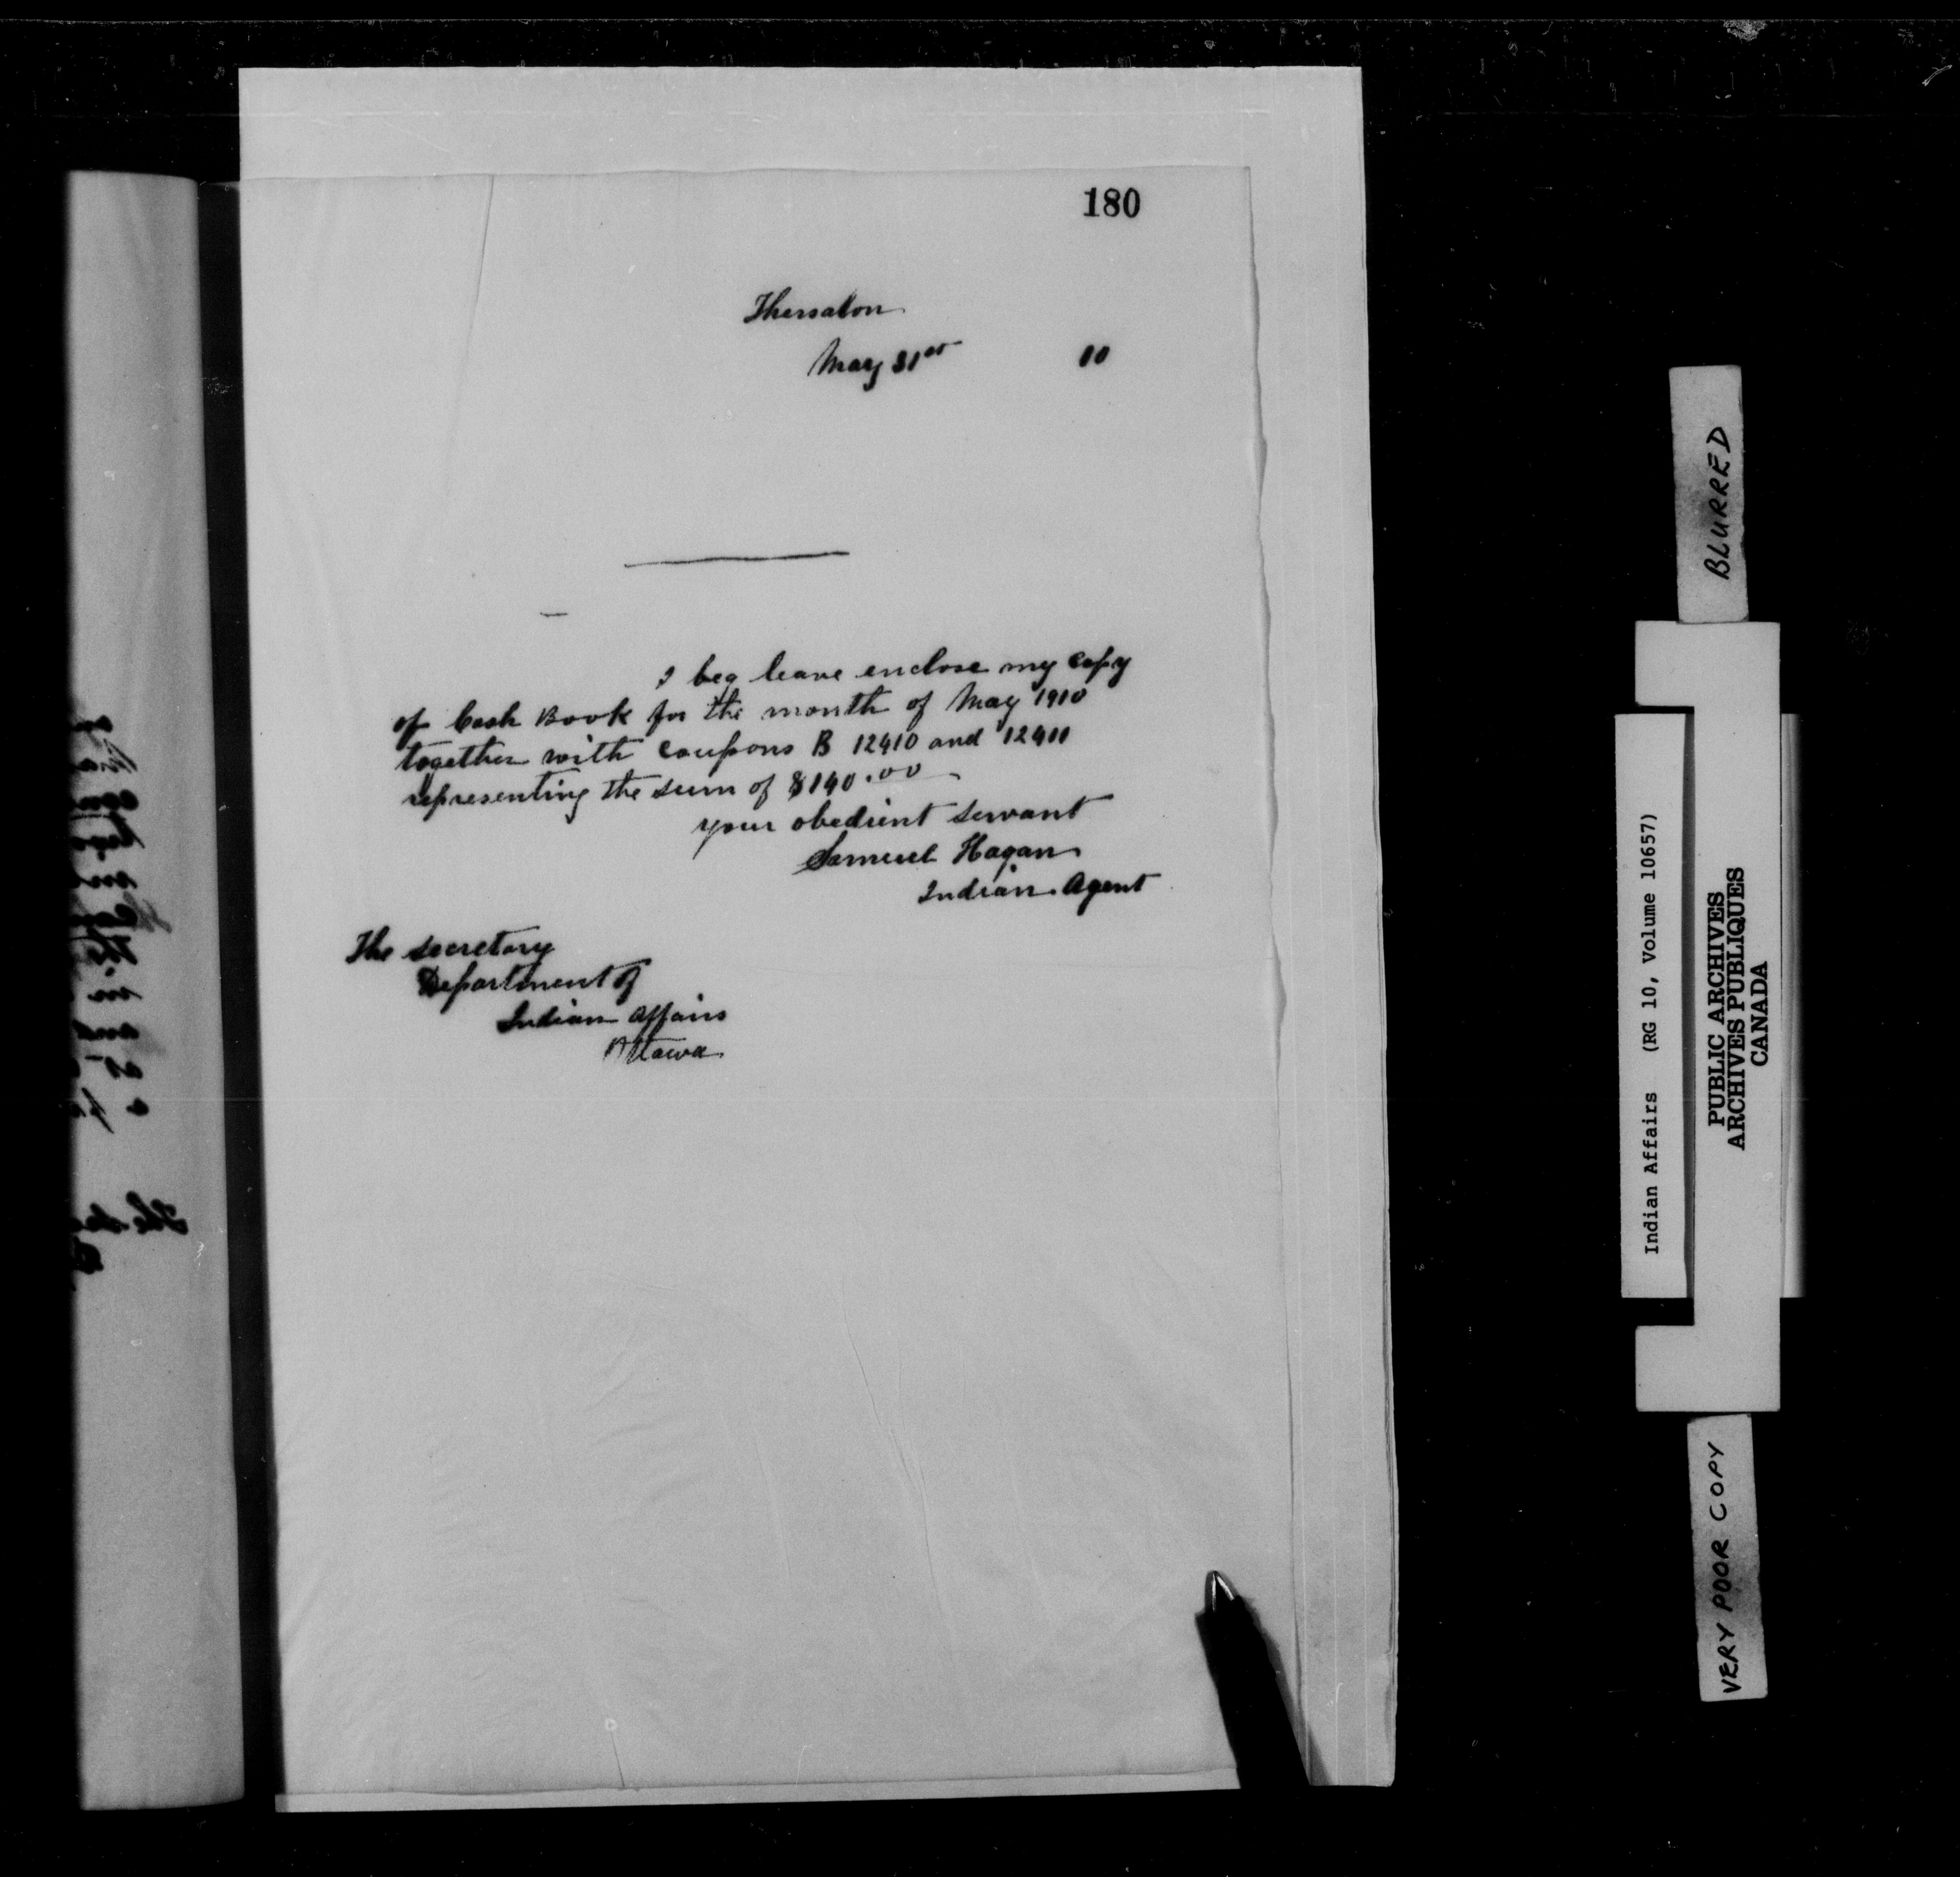 180
Thessalon
May 31st 10
I beg leave enclose my copy
of Cash Book for the month of May 1910
together with coupons B 12410 and 12411
representing the sum of $140.00
your obedient servant
Samuel Hagan
Indian Agent
The secretary
Department of
Indian Affairs
Ottawa
BLURRED
Indian Affairs (RG 10, Volume 10657)
PUBLIC ARCHIVES
ARCHIVES PUBLIQUES
CANADA
VERY POOR COPY